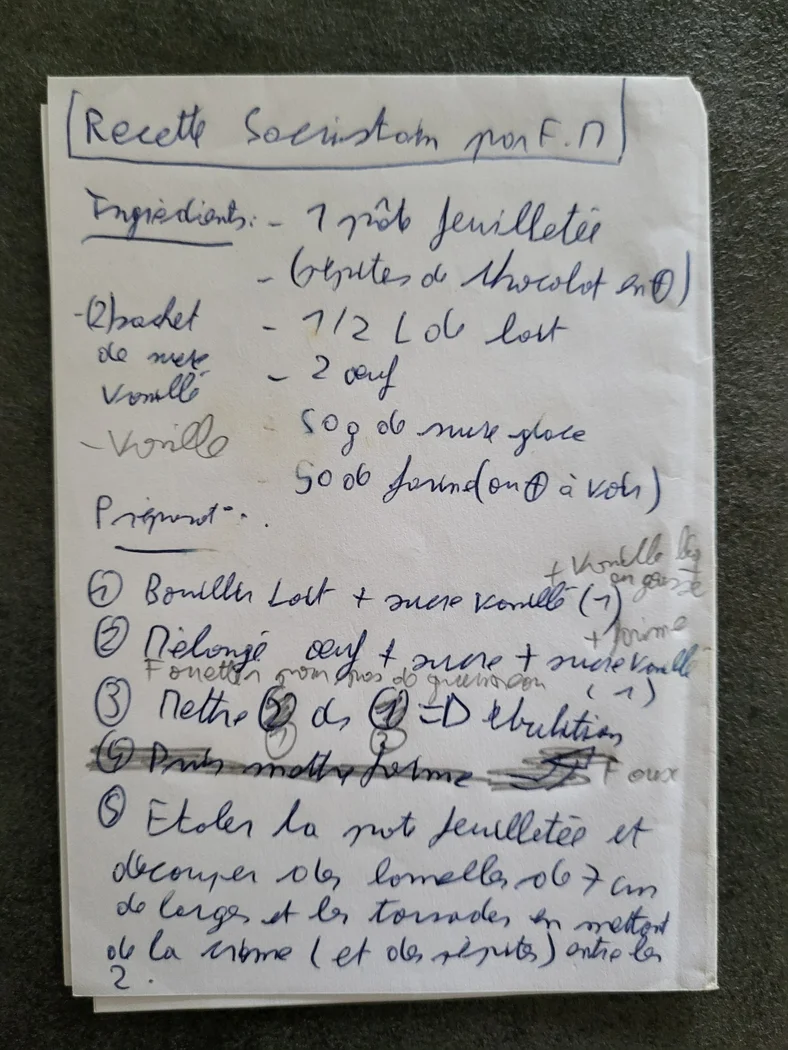 Recette Sacristain par F.M
Ingrédients: - 1 pâte feuilletée
- (pépites de chocolat en ⊕)
- (2) sachet
de sucre
vanillé
- 1/2 L de lait
- 2 œuf
- Vanille
- 50g de sucre glace
50 de farine (ou ⊕ à voir)
Préparat°:
+ Vanille liq
en gousse
① Bouillir Lait + sucre vanillé (1)
+ farine
② Mélangé œuf + sucre + sucre vanillé
(1)
Fouetter pour pas de
③ Mettre ② ds ① => Ebulition
① ②
④ Puis mettre farine
Faux
⑤ Etaler la pate feuilletée et
découper des lamelles de 7 cm
de larges et les torsades en mettant
de la crème (et des pépites) entre les
2.